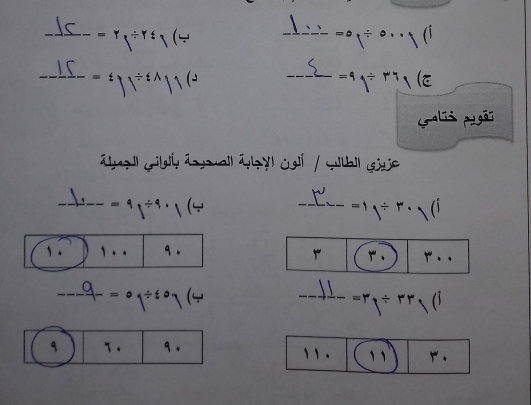 أ) ٥٠٠٠ ÷٥٠= ١٠٠
ب) ٢٤٠÷٢٠ = ١٢
ج) ٣٦٠ ÷٩٠= ٤
د) ٤٨٠٠÷٤٠٠ = ١٢
تقويم ختامي
عزيزي الطالب / ألون الإجابة الصحيحة بألواني الجميلة
أ) ٣٠٠ ÷١٠= ٣٠
ب) ٩٠٠÷٩٠ = ١٠
٣٠٠ ٣٠ ٣
٩٠ ١٠٠ ١٠
أ) ٣٣٠ ÷٣٠= ١١
ب) ٤٥٠÷٥٠ = ٩
٣٠ ١١ ١١٠
٩٠ ٦٠ ٩